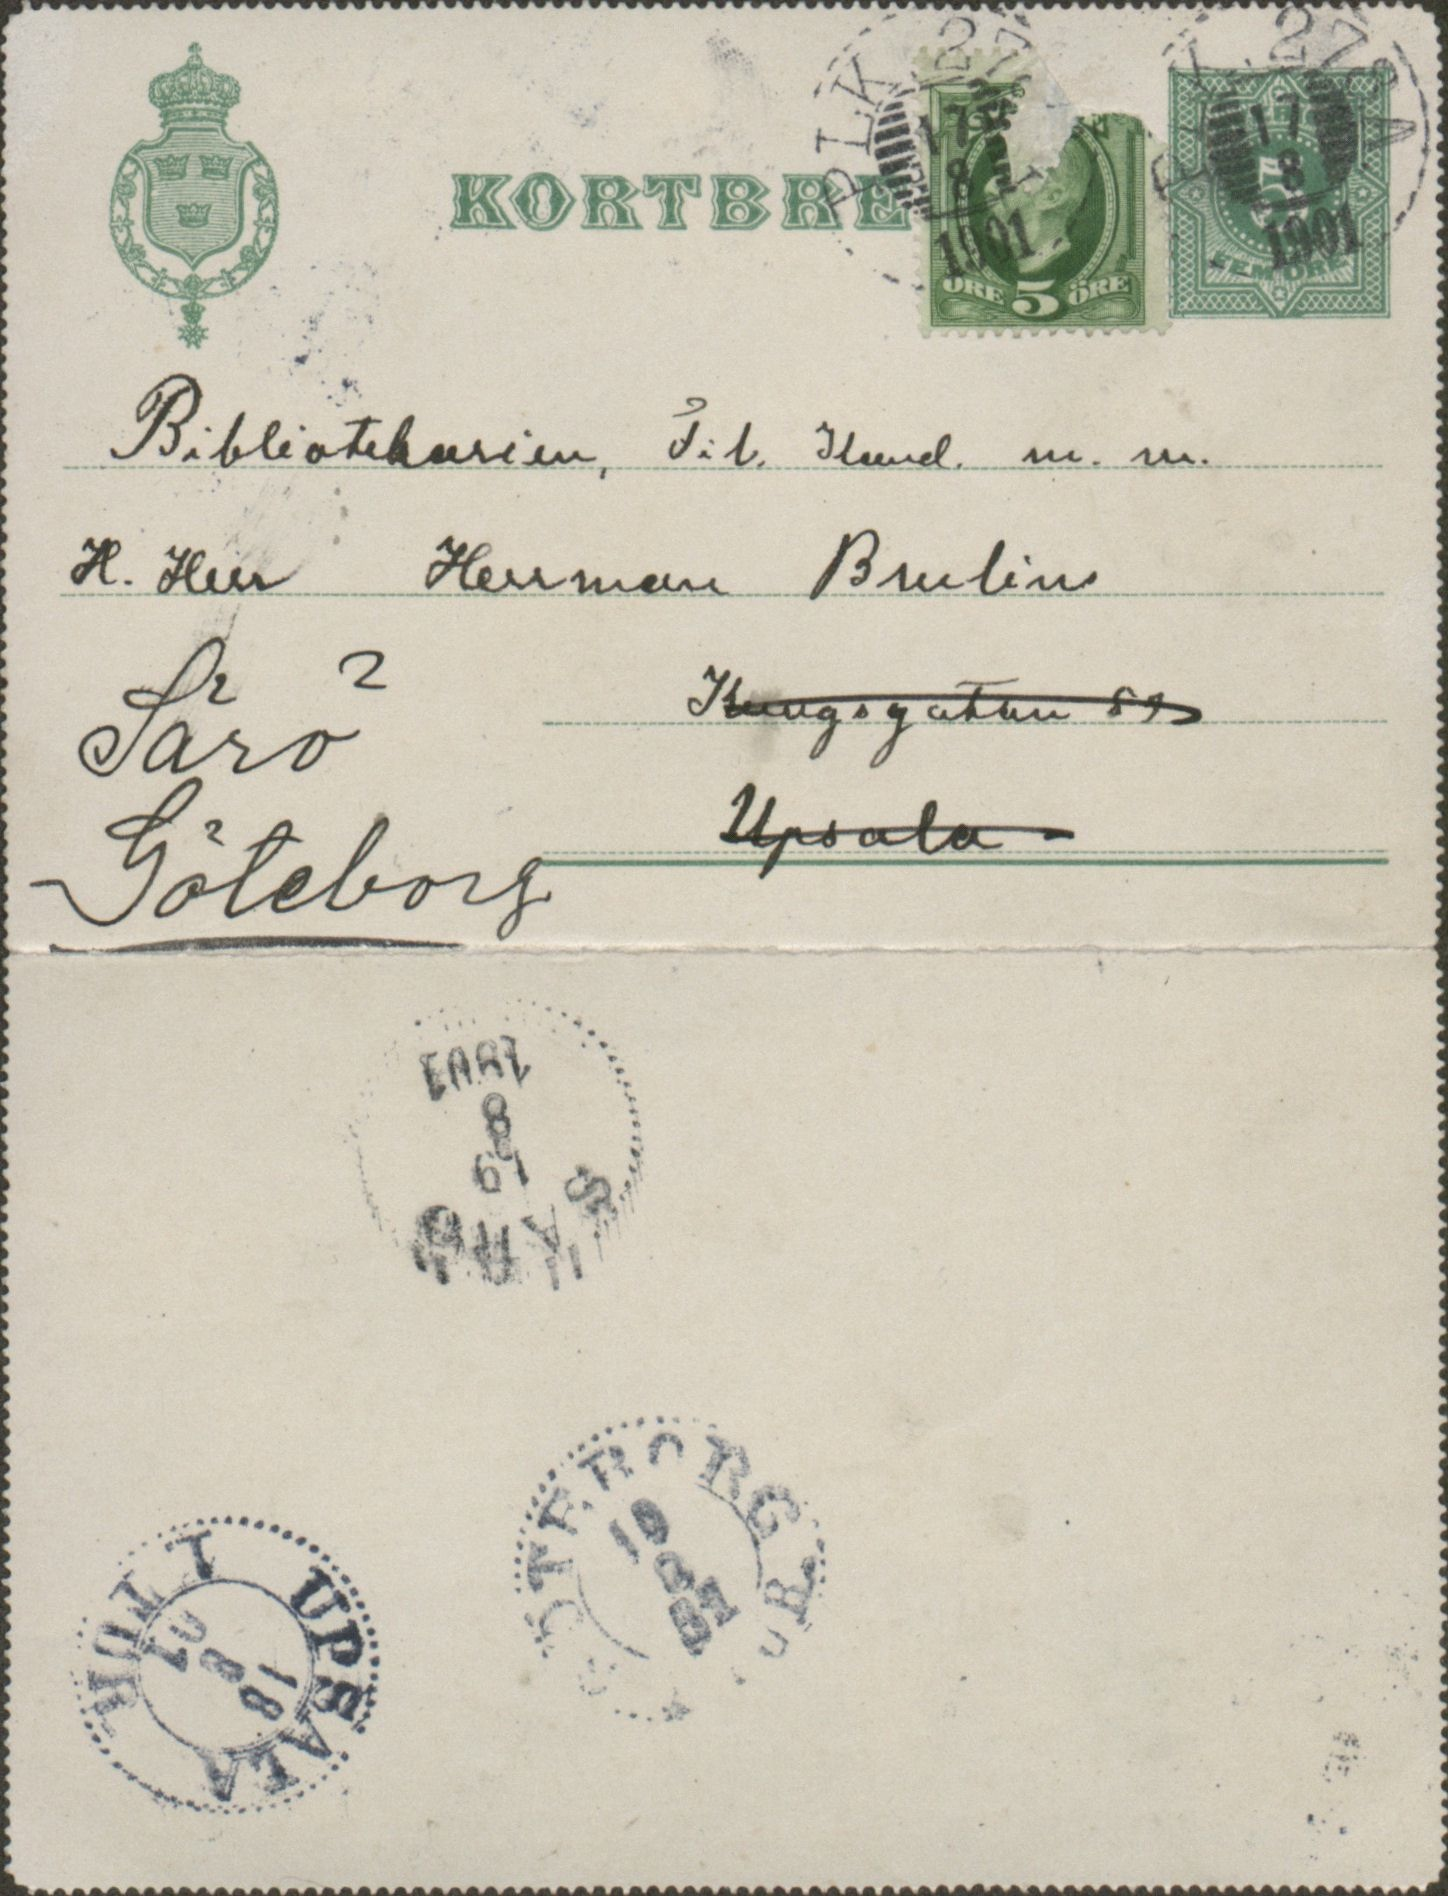 KORTBRE
ÖRE 5 ÖRE
FEM ÖRE
17
8
1901
17
8
1901
Bibliotekarien, Fil. Kand. m. m.
H. Herr Herrman Brulin
Särö
Kungsgatan
Upsala
Göteborg
SÄRÖ
19
8
1901
GÖTEBORG
19
8
01
UPSALA
18
8
01